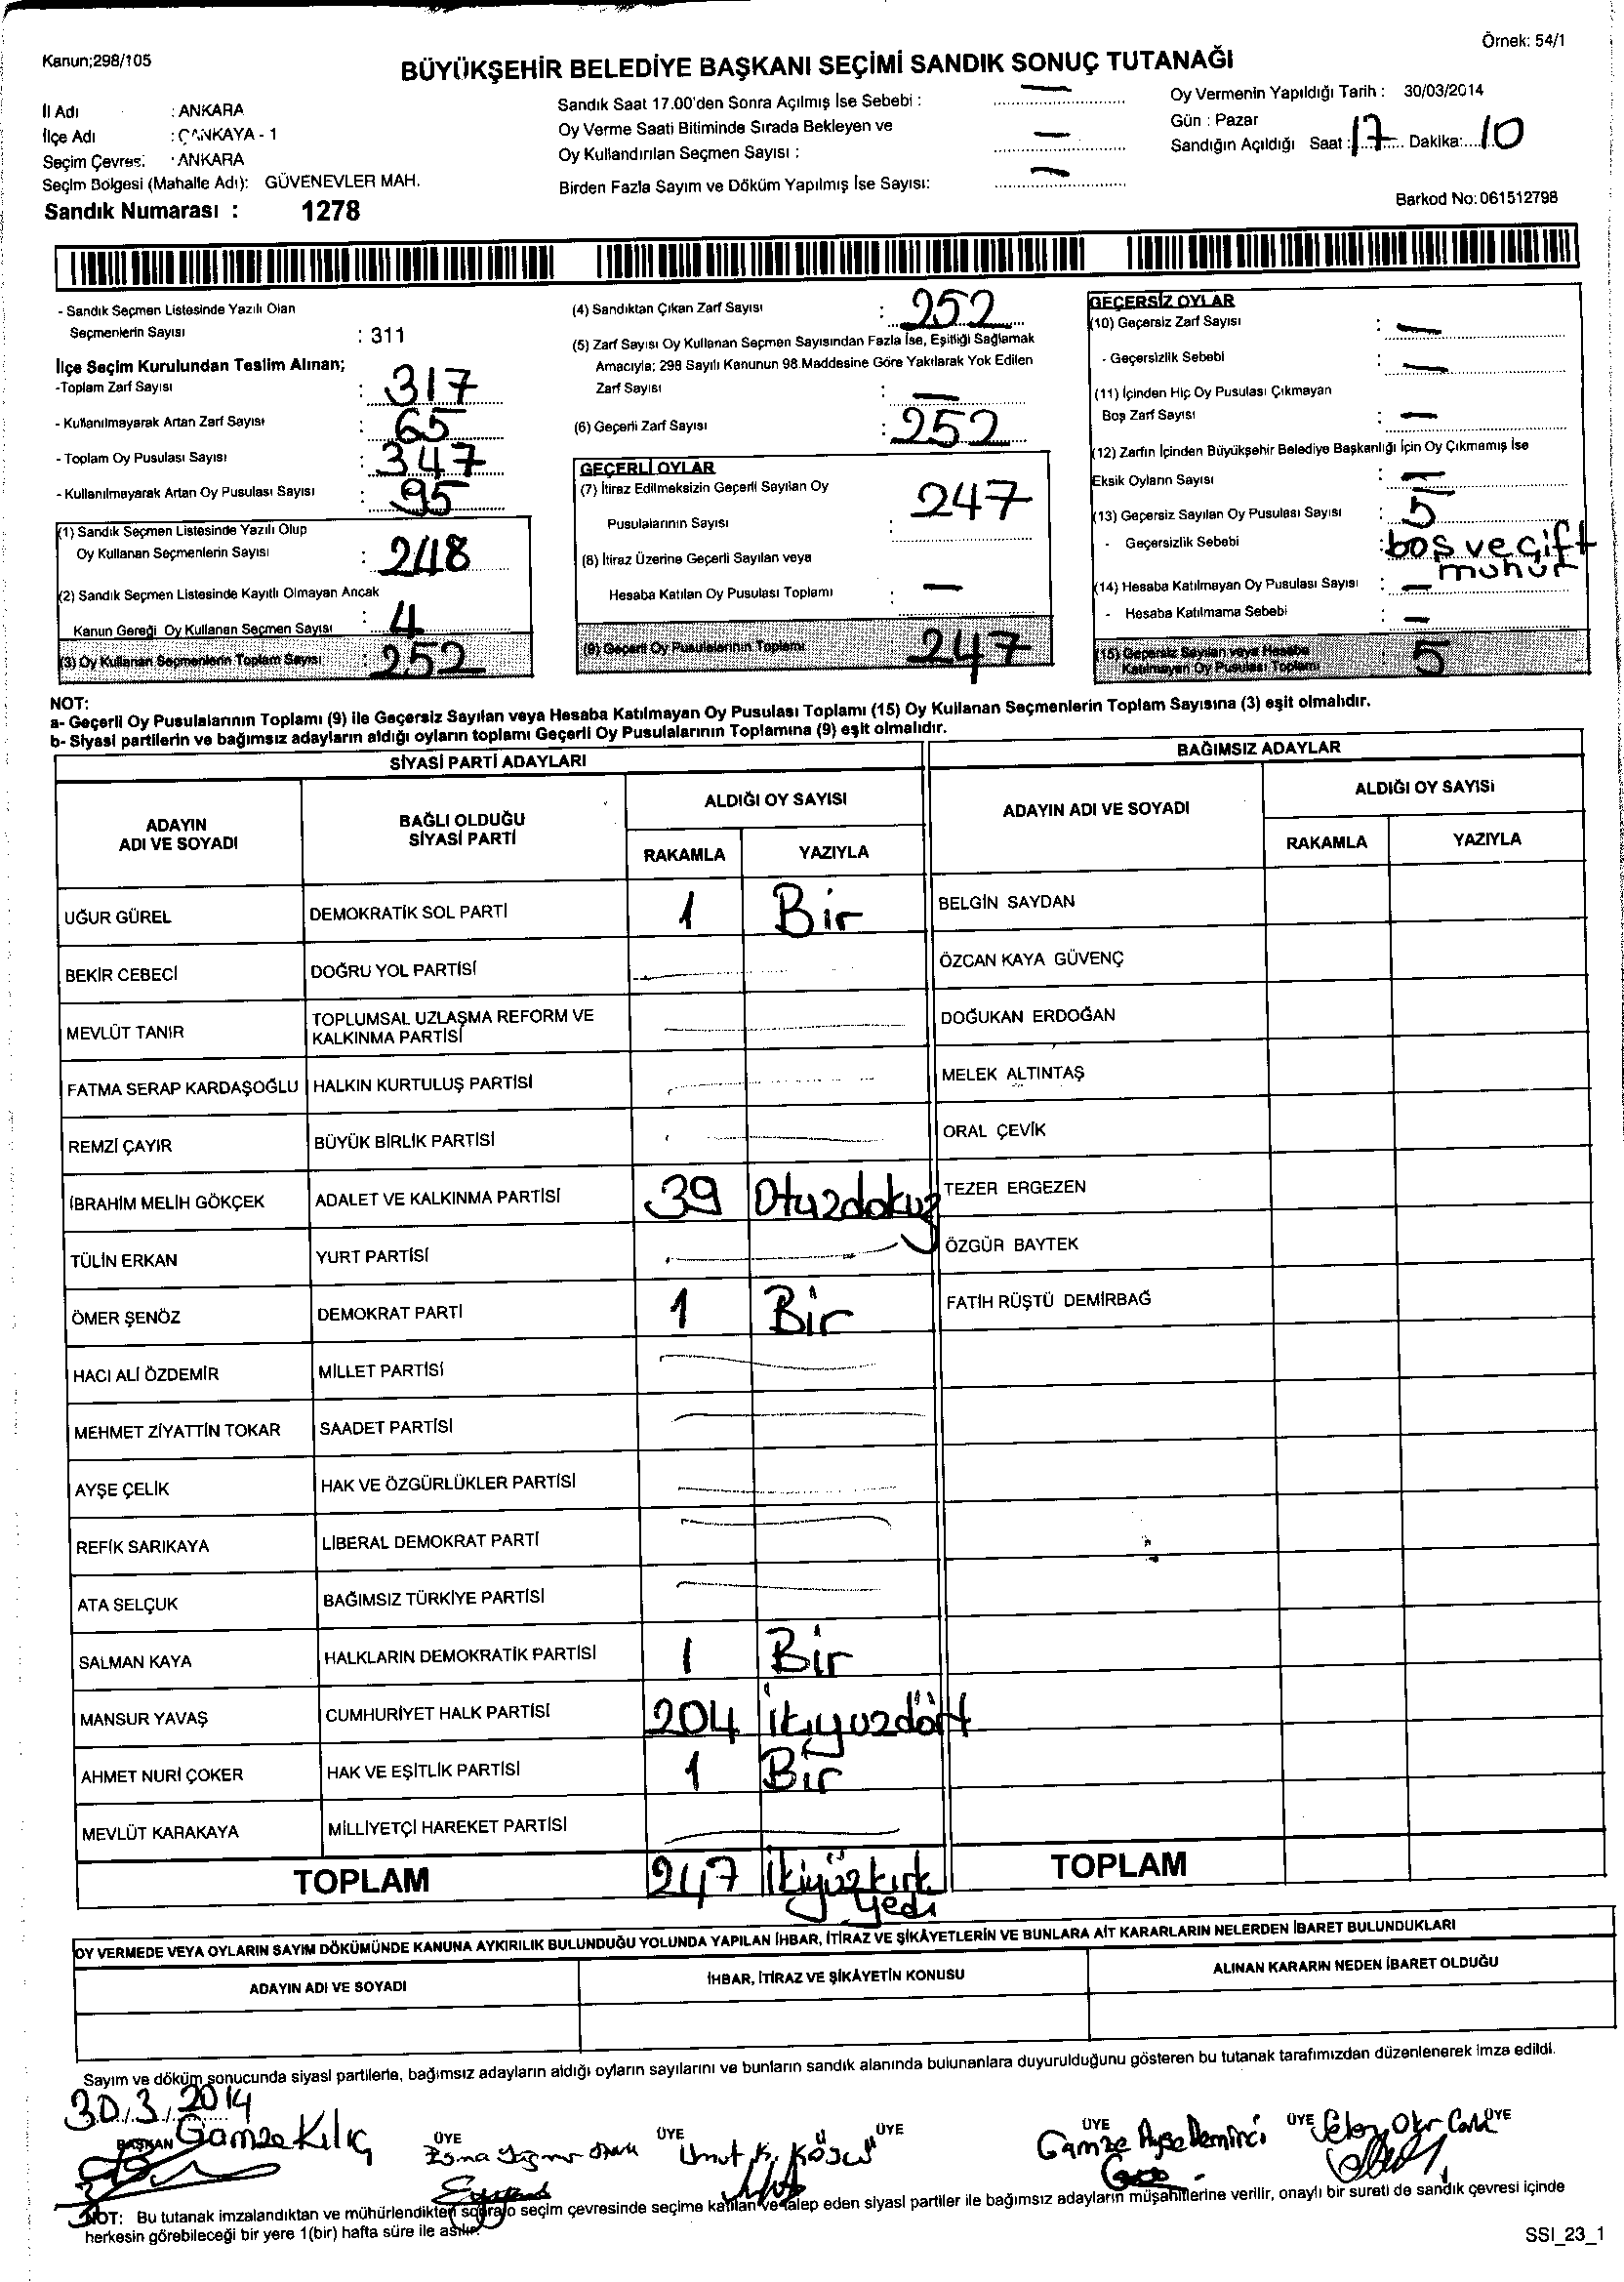 Örnek: 54/1
Kanun;298/105
BÜYÜKŞEHİR BELEDİYE BAŞKANI SEÇİMİ SANDIK SONUÇ TUTANAĞI
İl Adı : ANKARA
İlçe Adı : ÇANKAYA - 1
Seçim Çevresi : ANKARA
Seçim Bölgesi (Mahalle Adı): GÜVENEVLER MAH.
Sandık Numarası : 1278
Sandık Saat 17.00'den Sonra Açılmış İse Sebebi : —
Oy Verme Saati Bitiminde Sırada Bekleyen ve
Oy Kullandırılan Seçmen Sayısı : —
Birden Fazla Sayım ve Döküm Yapılmış İse Sayısı: —
Oy Vermenin Yapıldığı Tarih : 30/03/2014
Gün : Pazar
Sandığın Açıldığı Saat : 17 Dakika: 10
Barkod No: 061512798
- Sandık Seçmen Listesinde Yazılı Olan
Seçmenlerin Sayısı : 311
İlçe Seçim Kurulundan Teslim Alınan;
-Toplam Zarf Sayısı : 317
- Kullanılmayarak Artan Zarf Sayısı : 65
- Toplam Oy Pusulası Sayısı : 347
- Kullanılmayarak Artan Oy Pusulası Sayısı : 95
(1) Sandık Seçmen Listesinde Yazılı Olup
Oy Kullanan Seçmenlerin Sayısı : 248
(2) Sandık Seçmen Listesinde Kayıtlı Olmayan Ancak
Kanun Gereği Oy Kullanan Seçmen Sayısı : 4
(3) Oy Kullanan Seçmenlerin Toplam Sayısı : 252
(4) Sandıktan Çıkan Zarf Sayısı : 252
(5) Zarf Sayısı Oy Kullanan Seçmen Sayısından Fazla İse, Eşitliği Sağlamak
Amacıyla; 298 Sayılı Kanunun 98.Maddesine Göre Yakılarak Yok Edilen
Zarf Sayısı : —
(6) Geçerli Zarf Sayısı : 252
GEÇERLİ OYLAR
(7) İtiraz Edilmeksizin Geçerli Sayılan Oy
Pusulalarının Sayısı : 247
(8) İtiraz Üzerine Geçerli Sayılan veya
Hesaba Katılan Oy Pusulası Toplamı : —
(9) Geçerli Oy Pusulalarının Toplamı 247
GEÇERSİZ OYLAR
(10) Geçersiz Zarf Sayısı : —
- Geçersizlik Sebebi : —
(11) İçinden Hiç Oy Pusulası Çıkmayan
Boş Zarf Sayısı : —
(12) Zarfın İçinden Büyükşehir Belediye Başkanlığı İçin Oy Çıkmamış İse
Eksik Oyların Sayısı : —
(13) Geçersiz Sayılan Oy Pusulası Sayısı : 5
- Geçersizlik Sebebi : boş ve çift
mühür
(14) Hesaba Katılmayan Oy Pusulası Sayısı : —
- Hesaba Katılmama Sebebi : —
(15) Geçersiz Sayılan veya Hesaba
Katılmayan Oy Pusulası Toplamı 5
NOT:
a- Geçerli Oy Pusulalarının Toplamı (9) ile Geçersiz Sayılan veya Hesaba Katılmayan Oy Pusulası Toplamı (15) Oy Kullanan Seçmenlerin Toplam Sayısına (3) eşit olmalıdır.
b- Siyasi partilerin ve bağımsız adayların aldığı oyların toplamı Geçerli Oy Pusulalarının Toplamına (9) eşit olmalıdır.
SİYASİ PARTİ ADAYLARI
ADAYIN
ADI VE SOYADI
BAĞLI OLDUĞU
SİYASİ PARTİ
ALDIĞI OY SAYISI
RAKAMLA YAZIYLA
UĞUR GÜREL DEMOKRATİK SOL PARTİ 1 Bir
BEKİR CEBECİ DOĞRU YOL PARTİSİ
MEVLÜT TANIR TOPLUMSAL UZLAŞMA REFORM VE
KALKINMA PARTİSİ
FATMA SERAP KARDAŞOĞLU HALKIN KURTULUŞ PARTİSİ
REMZİ ÇAYIR BÜYÜK BİRLİK PARTİSİ
İBRAHİM MELİH GÖKÇEK ADALET VE KALKINMA PARTİSİ 39 Otuzdokuz
TÜLİN ERKAN YURT PARTİSİ
ÖMER ŞENÖZ DEMOKRAT PARTİ 1 Bir
HACI ALİ ÖZDEMİR MİLLET PARTİSİ
MEHMET ZİYATTİN TOKAR SAADET PARTİSİ
AYŞE ÇELİK HAK VE ÖZGÜRLÜKLER PARTİSİ
REFİK SARIKAYA LİBERAL DEMOKRAT PARTİ
ATA SELÇUK BAĞIMSIZ TÜRKİYE PARTİSİ
SALMAN KAYA HALKLARIN DEMOKRATİK PARTİSİ 1 Bir
MANSUR YAVAŞ CUMHURİYET HALK PARTİSİ 204 ikiyüzdört
AHMET NURİ ÇOKER HAK VE EŞİTLİK PARTİSİ 1 Bir
MEVLÜT KARAKAYA MİLLİYETÇİ HAREKET PARTİSİ
TOPLAM 247 ikiyüzkırk
yedi
BAĞIMSIZ ADAYLAR
ADAYIN ADI VE SOYADI
ALDIĞI OY SAYISI
RAKAMLA YAZIYLA
BELGİN SAYDAN
ÖZCAN KAYA GÜVENÇ
DOĞUKAN ERDOĞAN
MELEK ALTINTAŞ
ORAL ÇEVİK
TEZER ERGEZEN
ÖZGÜR BAYTEK
FATİH RÜŞTÜ DEMİRBAĞ
TOPLAM
OY VERMEDE VEYA OYLARIN SAYIM DÖKÜMÜNDE KANUNA AYKIRILIK BULUNDUĞU YOLUNDA YAPILAN İHBAR, İTİRAZ VE ŞİKÂYETLERİN VE BUNLARA AİT KARARLARIN NELERDEN İBARET BULUNDUKLARI
ADAYIN ADI VE SOYADI İHBAR, İTİRAZ VE ŞİKÂYETİN KONUSU ALINAN KARARIN NEDEN İBARET OLDUĞU
Sayım ve döküm sonucunda siyasi partilerle, bağımsız adayların aldığı oyların sayılarını ve bunların sandık alanında bulunanlara duyurulduğunu gösteren bu tutanak tarafımızdan düzenlenerek imza edildi.
30.3.2014
BAŞKAN Gamze Kılıç ÜYE ÜYE Umut K. Köscü ÜYE ÜYE Gamze Ayşe Demirci ÜYE ÜYE
NOT: Bu tutanak imzalandıktan ve mühürlendikten sonra o seçim çevresinde seçime katılan ve talep eden siyasi partiler ile bağımsız adayların müşahitlerine verilir, onaylı bir sureti de sandık çevresi içinde
herkesin görebileceği bir yere 1(bir) hafta süre ile asılır.
SSI_23_1